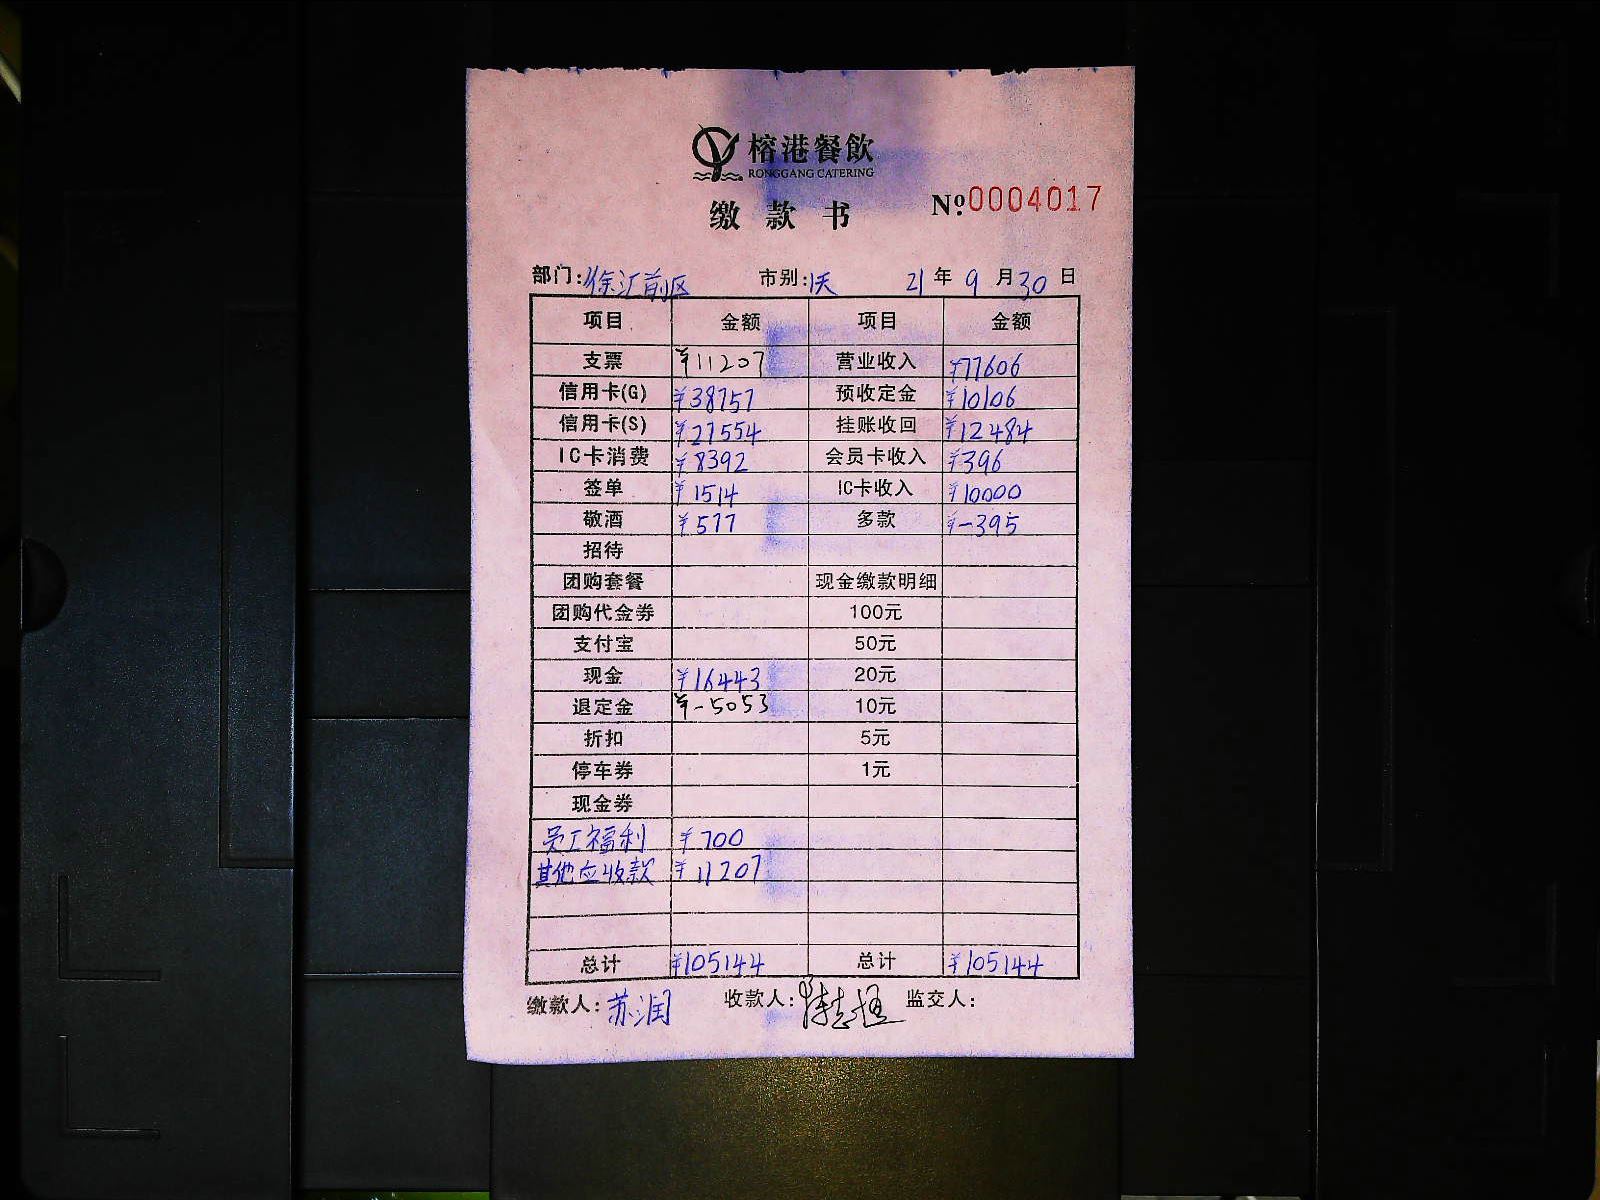 榕港餐飲
RONGGANG CATERING
缴款书 №0004017
部门:徐汇前区 市别:1天 21年9月30日
项目 金额 项目 金额
支票 ¥11207 营业收入 ¥77606
信用卡(G) ¥38757 预收定金 ¥10106
信用卡(S) ¥27554 挂账收回 ¥12484
IC卡消费 ¥8392 会员卡收入 ¥396
签单 ¥1514 IC卡收入 ¥10000
敬酒 ¥577 多款 ¥-395
招待
团购套餐 现金缴款明细
团购代金券 100元
支付宝 50元
现金 ¥16443 20元
退定金 ¥-5053 10元
折扣 5元
停车券 1元
现金券
员工福利 ¥700
其他应收款 ¥11207
总计 ¥105144 总计 ¥105144
缴款人:苏润 收款人: 监交人: